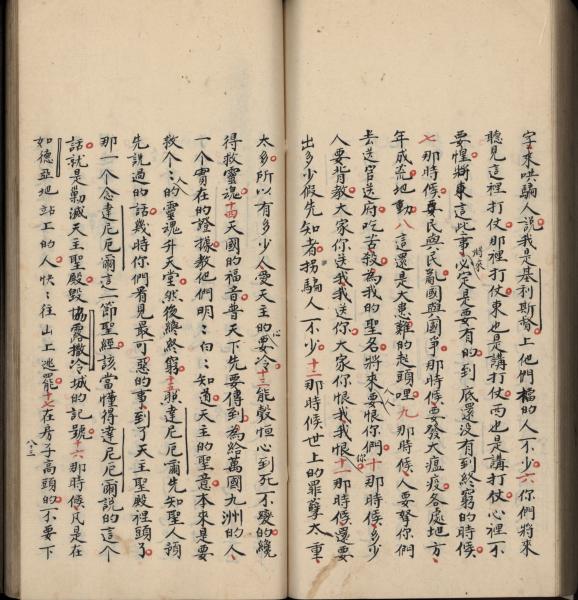 字來哄騙人說我是基利斯督上他們檔的人不少六你們將來
聽見這裡打仗那裡打仗東也是講打仗西也是講打仗心裡一不
要惶斷來這些事必定是要有的到底還沒有到終窮的時候
時候
七那時候要民與民亂國與國爭那時候要發大瘟疫各處地方
年成荒地動八這還是大患難的起頭哩九那時候人要拏你們
去送官送府吃苦殺為我的聖名將來人要恨你們十那時候多少
人要背教大家你送我我送你大家你恨我我恨你十一那時候還要
出多少假先知者拐騙人不少十二那時候世上的罪孽太重
太多所以有多少人愛天主的心要冷十三能彀恒心到死不變的纔
得救靈魂十四天國的福音普天下先要傳到為給萬國九洲的人
一個實在的證據教他們明明白白知道天主的聖意本來是要
救人個個的靈魂升天堂然後纔終窮十五照達尼厄爾先知聖人預
先說過的話幾時你們看見最可惡的事到了天主聖殿裡頭了
那一個念達尼厄爾這一節聖經該當懂得達尼厄爾說的這個
話就是勦滅天主聖殿毀協露撒冷城的記號十六那時候凡是在
如德亞地站上的人快快往山上逃罷十七在房子高頭的不要下
八三